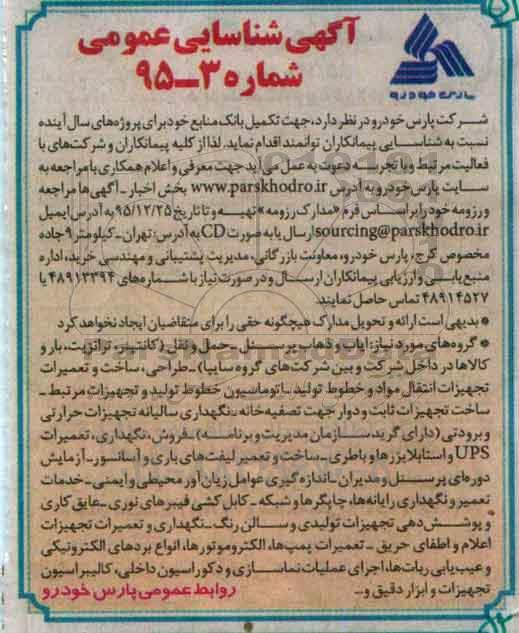 آگهی شناسایی عمومی
شماره ۳-۹۵
پارس خودرو
شرکت پارس خودرو در نظر دارد، جهت تکمیل بانک منابع خود برای پروژه‌های سال آینده
نسبت به شناسایی پیمانکاران توانمند اقدام نماید. لذا از کلیه پیمانکاران و شرکت‌های با
فعالیت مرتبط و با تجربه دعوت به عمل می آید جهت معرفی و اعلام همکاری با مراجعه به
سایت پارس خودرو به آدرس www.parskhodro.ir بخش اخبار - آگهی‌ها مراجعه
و رزومه خود را براساس فرم «مدارک رزومه» تهیه و تا تاریخ ۹۵/۱۲/۲۵ به آدرس ایمیل
sourcing@parskhodro.ir ارسال یا به صورت CD به آدرس: تهران - کیلومتر ۹ جاده
مخصوص کرج، پارس خودرو، معاونت بازرگانی، مدیریت پشتیبانی و مهندسی خرید، اداره
منبع یابی و ارزیابی پیمانکاران ارسال و در صورت نیاز با شماره‌های ۴۸۹۱۳۳۹۴ یا
۴۸۹۱۴۵۲۷ تماس حاصل نمایند.
* بدیهی است ارائه و تحویل مدارک هیچگونه حقی را برای متقاضیان ایجاد نخواهد کرد
* گروه‌های مورد نیاز: ایاب و ذهاب پرسنل - حمل و نقل (کانتینر، ترانزیت، بار و
کالاها در داخل شرکت و بین شرکت‌های گروه سایپا) - طراحی، ساخت و تعمیرات
تجهیزات انتقال مواد و خطوط تولید - اتوماسیون خطوط تولید و تجهیزات مرتبط -
ساخت تجهیزات ثابت و دوار جهت تصفیه خانه - نگهداری سالیانه تجهیزات حرارتی
و برودتی (دارای گرید سازمان مدیریت و برنامه) - فروش، نگهداری، تعمیرات
UPS و استابلایزرها و باطری - ساخت و تعمیر لیفت‌های باری و آسانسور - آزمایش
دوره‌ای پرسنل و مدیران - اندازه گیری عوامل زیان آور محیطی و ایمنی - خدمات
تعمیر و نگهداری رایانه‌ها، چاپگرها و شبکه - کابل کشی فیبرهای نوری - عایق کاری
و پوشش دهی تجهیزات تولیدی و سالن رنگ - نگهداری و تعمیرات تجهیزات
اعلام و اطفای حریق - تعمیرات پمپ‌ها، الکتروموتورها، انواع بردهای الکترونیکی
و عیب یابی ربات‌ها، اجرای عملیات نماسازی و دکوراسیون داخلی، کالیبراسیون
تجهیزات و ابزار دقیق و...
روابط عمومی پارس خودرو